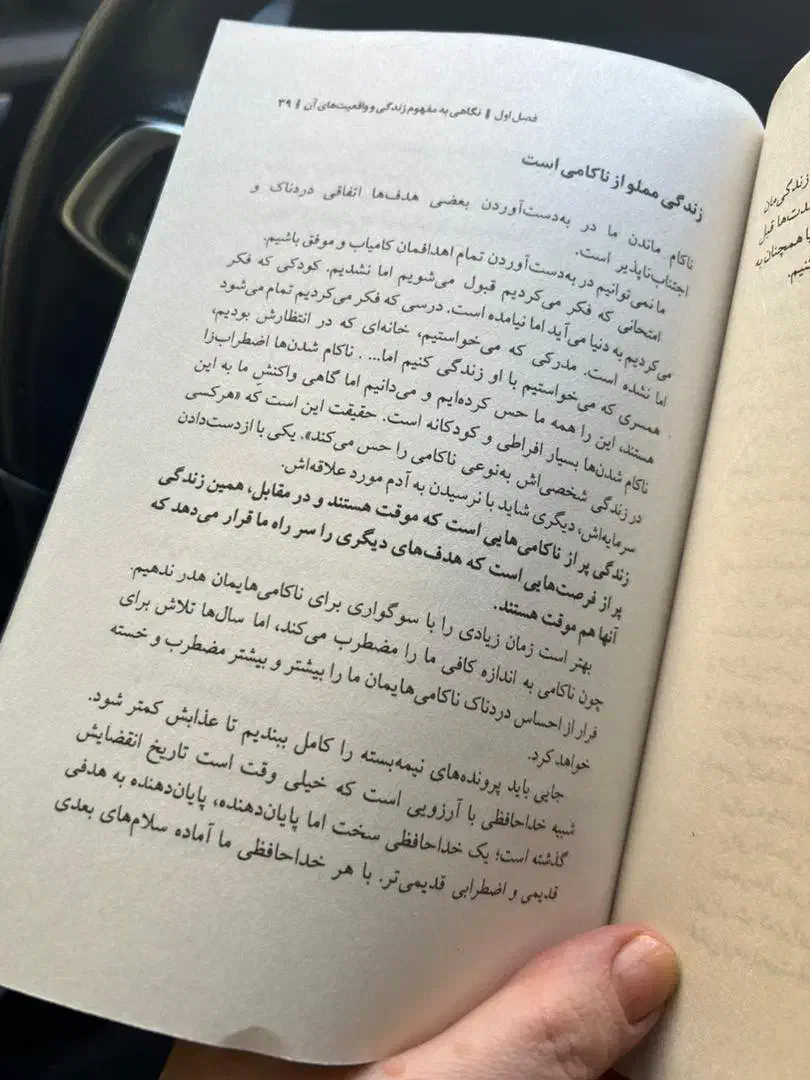 فصل اول || نگاهی به مفهوم زندگی و واقعیت‌های آن || ۳۹
زندگی مملو از ناکامی است
ناکام ماندن ما در به‌دست‌آوردن بعضی هدف‌ها اتفاقی دردناک و
اجتناب‌ناپذیر است.
ما نمی‌توانیم در به‌دست‌آوردن تمام اهدافمان کامیاب و موفق باشیم.
امتحانی که فکر می‌کردیم قبول می‌شویم اما نشدیم. کودکی که فکر
می‌کردیم به دنیا می‌آید اما نیامده است. درسی که فکر می‌کردیم تمام می‌شود
اما نشده است. مدرکی که می‌خواستیم، خانه‌ای که در انتظارش بودیم،
همسری که می‌خواستیم با او زندگی کنیم اما... . ناکام شدن‌ها اضطراب‌زا
هستند، این را همه ما حس کرده‌ایم و می‌دانیم اما گاهی واکنشِ ما به این
ناکام شدن‌ها بسیار افراطی و کودکانه است. حقیقت این است که «هرکسی
در زندگی شخصی‌اش به‌نوعی ناکامی را حس می‌کند». یکی با ازدست‌دادن
سرمایه‌اش، دیگری شاید با نرسیدن به آدم مورد علاقه‌اش.
زندگی پر از ناکامی‌هایی است که موقت هستند و در مقابل، همین زندگی
پر از فرصت‌هایی است که هدف‌های دیگری را سر راه ما قرار می‌دهد که
آنها هم موقت هستند.
بهتر است زمان زیادی را با سوگواری برای ناکامی‌هایمان هدر ندهیم.
چون ناکامی به اندازه کافی ما را مضطرب می‌کند، اما سال‌ها تلاش برای
فرار از احساس دردناک ناکامی‌هایمان ما را بیشتر و بیشتر مضطرب و خسته
خواهد کرد.
جایی باید پرونده‌های نیمه‌بسته را کامل ببندیم تا عذابش کمتر شود.
شبیه خداحافظی با آرزویی است که خیلی وقت است تاریخ انقضایش
گذشته است؛ یک خداحافظی سخت اما پایان‌دهنده، پایان‌دهنده به هدفی
قدیمی و اضطرابی قدیمی‌تر. با هر خداحافظی ما آماده سلام‌های بعدی
زندگی‌مان
مدت‌ها قبل
یا همچنان به
کنیم.